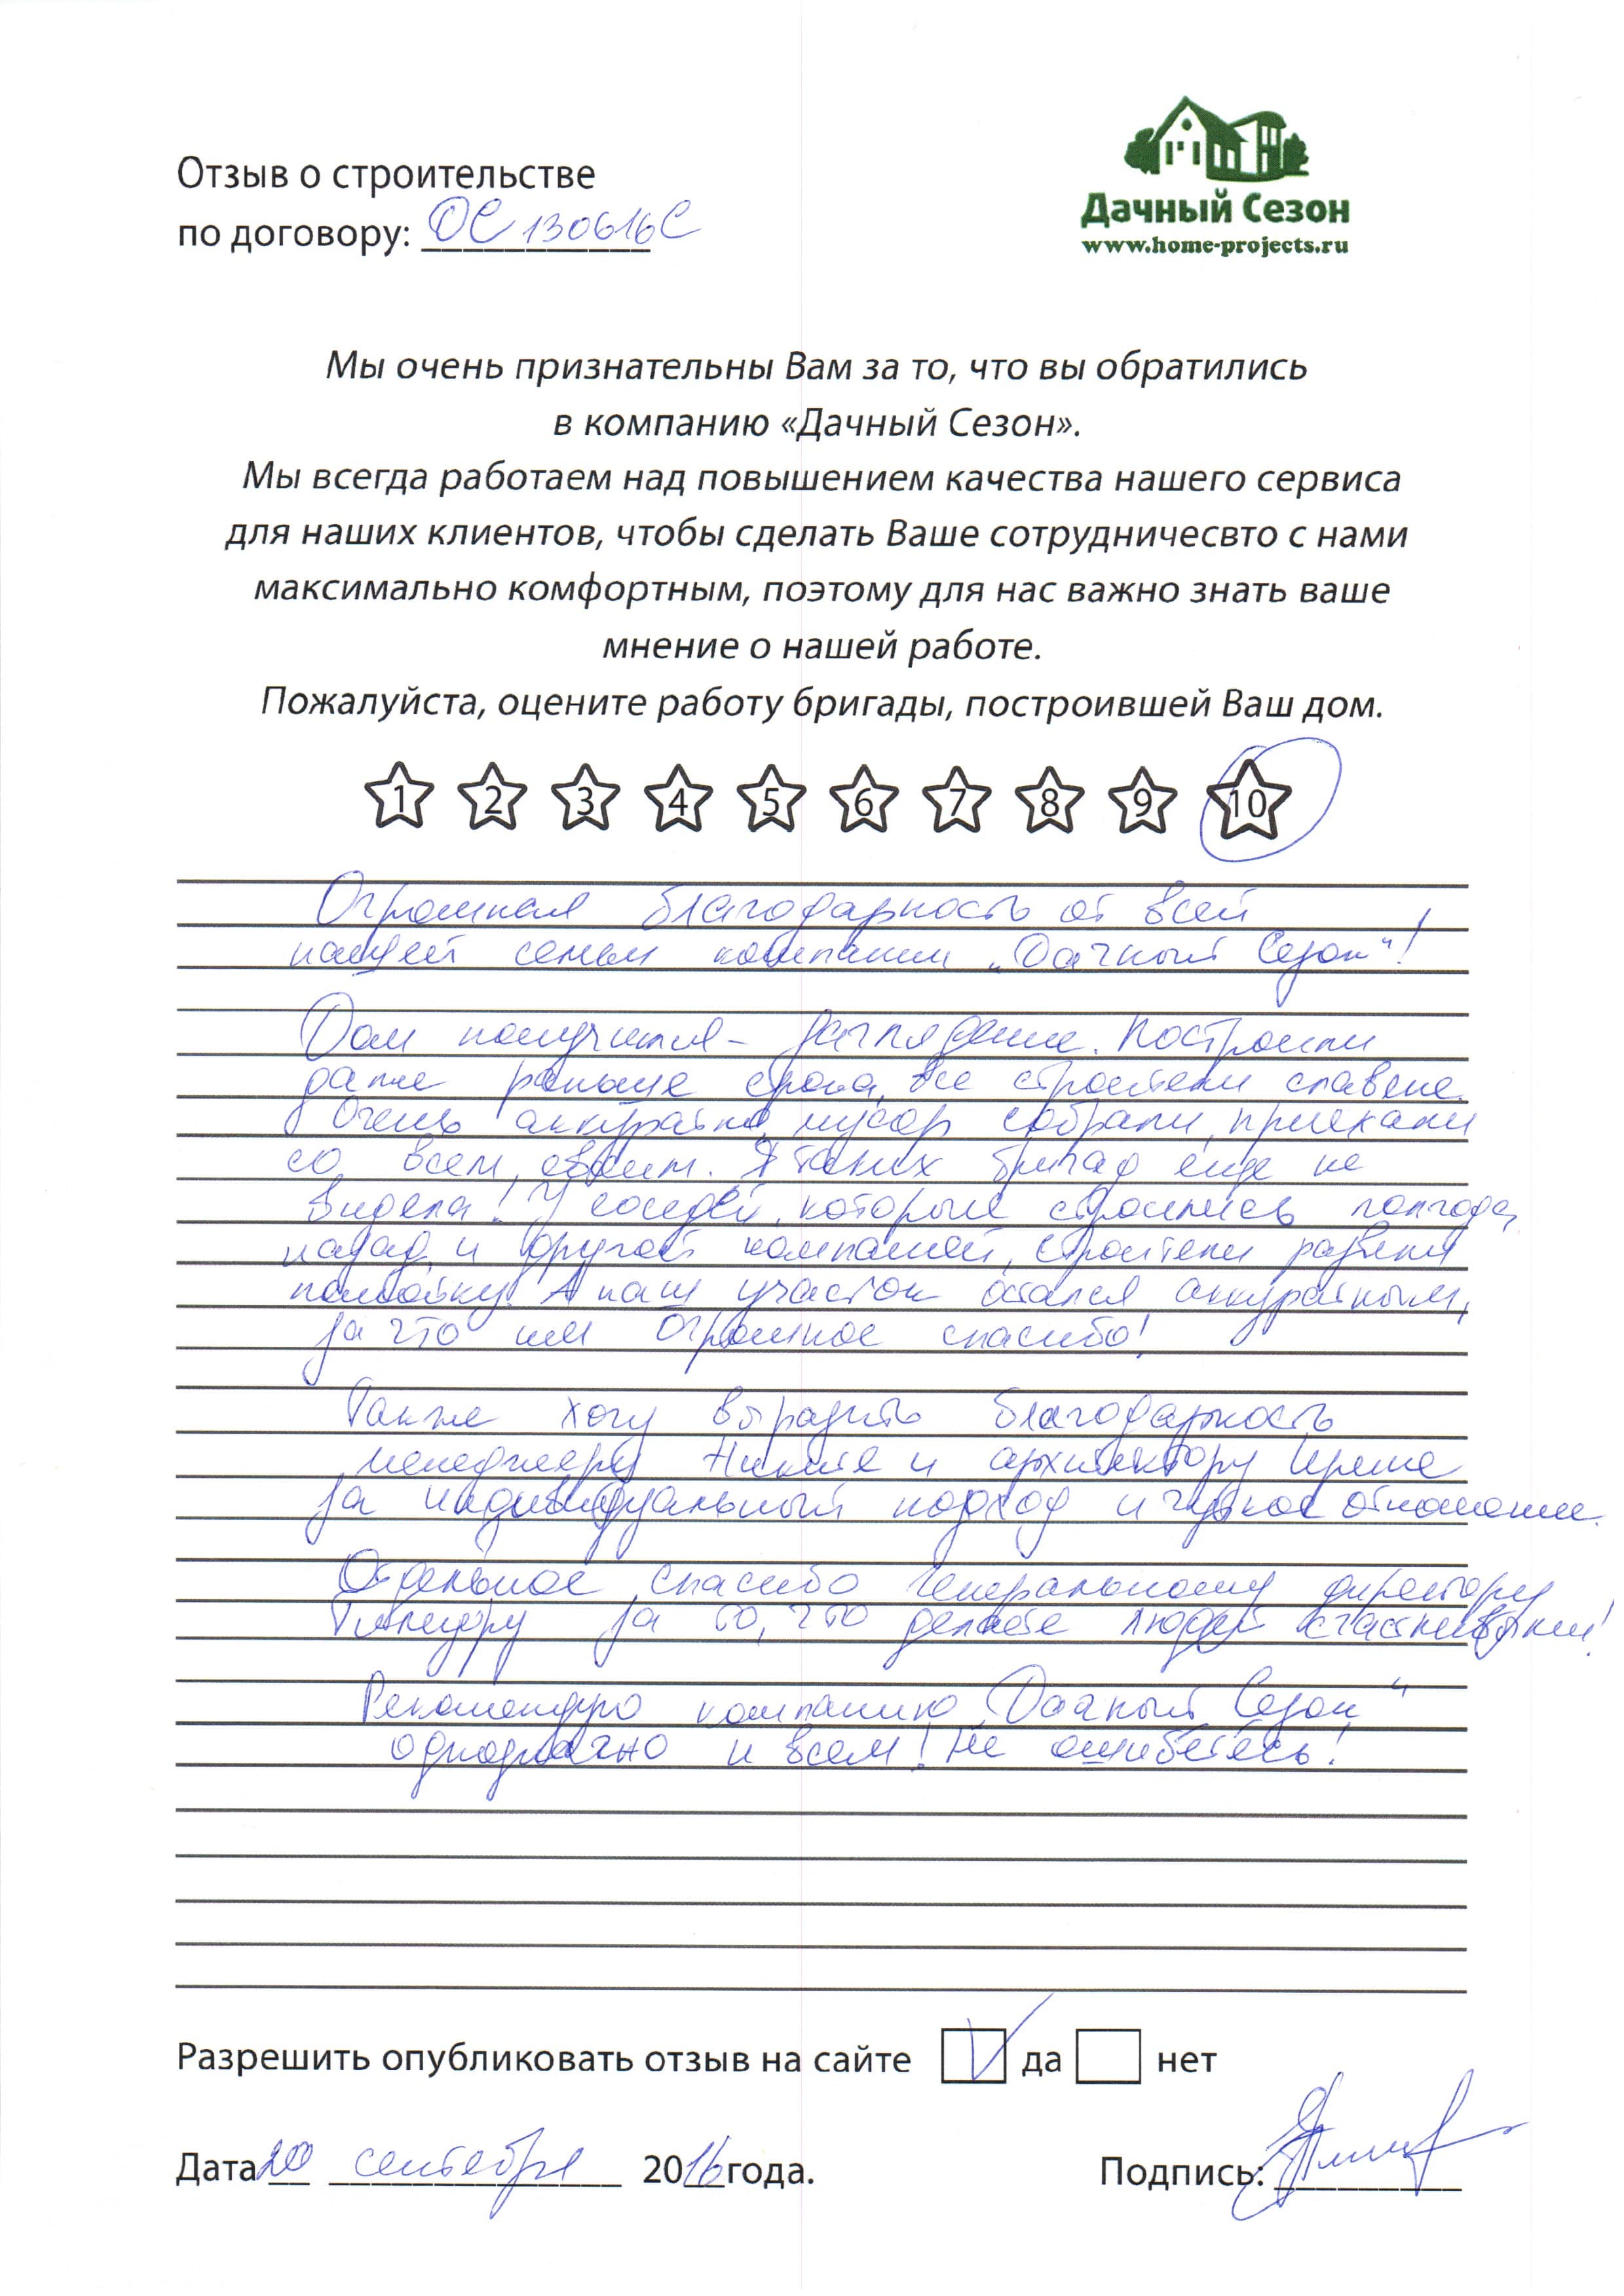 Отзыв о строительстве
по договору: ДС 130616С
Дачный Сезон
www.home-projects.ru
Мы очень признательны Вам за то, что вы обратились
в компанию «Дачный Сезон».
Мы всегда работаем над повышением качества нашего сервиса
для наших клиентов, чтобы сделать Ваше сотрудничесвто с нами
максимально комфортным, поэтому для нас важно знать ваше
мнение о нашей работе.
Пожалуйста, оцените работу бригады, построившей Ваш дом.
1 2 3 4 5 6 7 8 9 10
Огромная благодарность от всей
нашей семьи компании „Дачный Сезон"!
Дом получился - загляденье. Построили
даже раньше срока, все строители славяне.
Очень аккуратно, мусор собрали, приехали
со всем своим. Я таких бригад еще не
видела! У соседей, которые строились полгода
назад и другой компанией, строители развели
помойку. А наш участок остался аккуратным,
за что им Огромное спасибо!
Также хочу выразить благодарность
менеджеру Никите и архитектору Ирине
за индивидуальный подход и чуткое отношение.
Отдельное спасибо генеральному директору
Тимуру за то, что делаете людей счастливыми!
Рекомендую компанию „Дачный Сезон"
однозначно и всем! Не ошибетесь!
Разрешить опубликовать отзыв на сайте V да нет
Дата 20 сентября 2016 года.
Подпись: